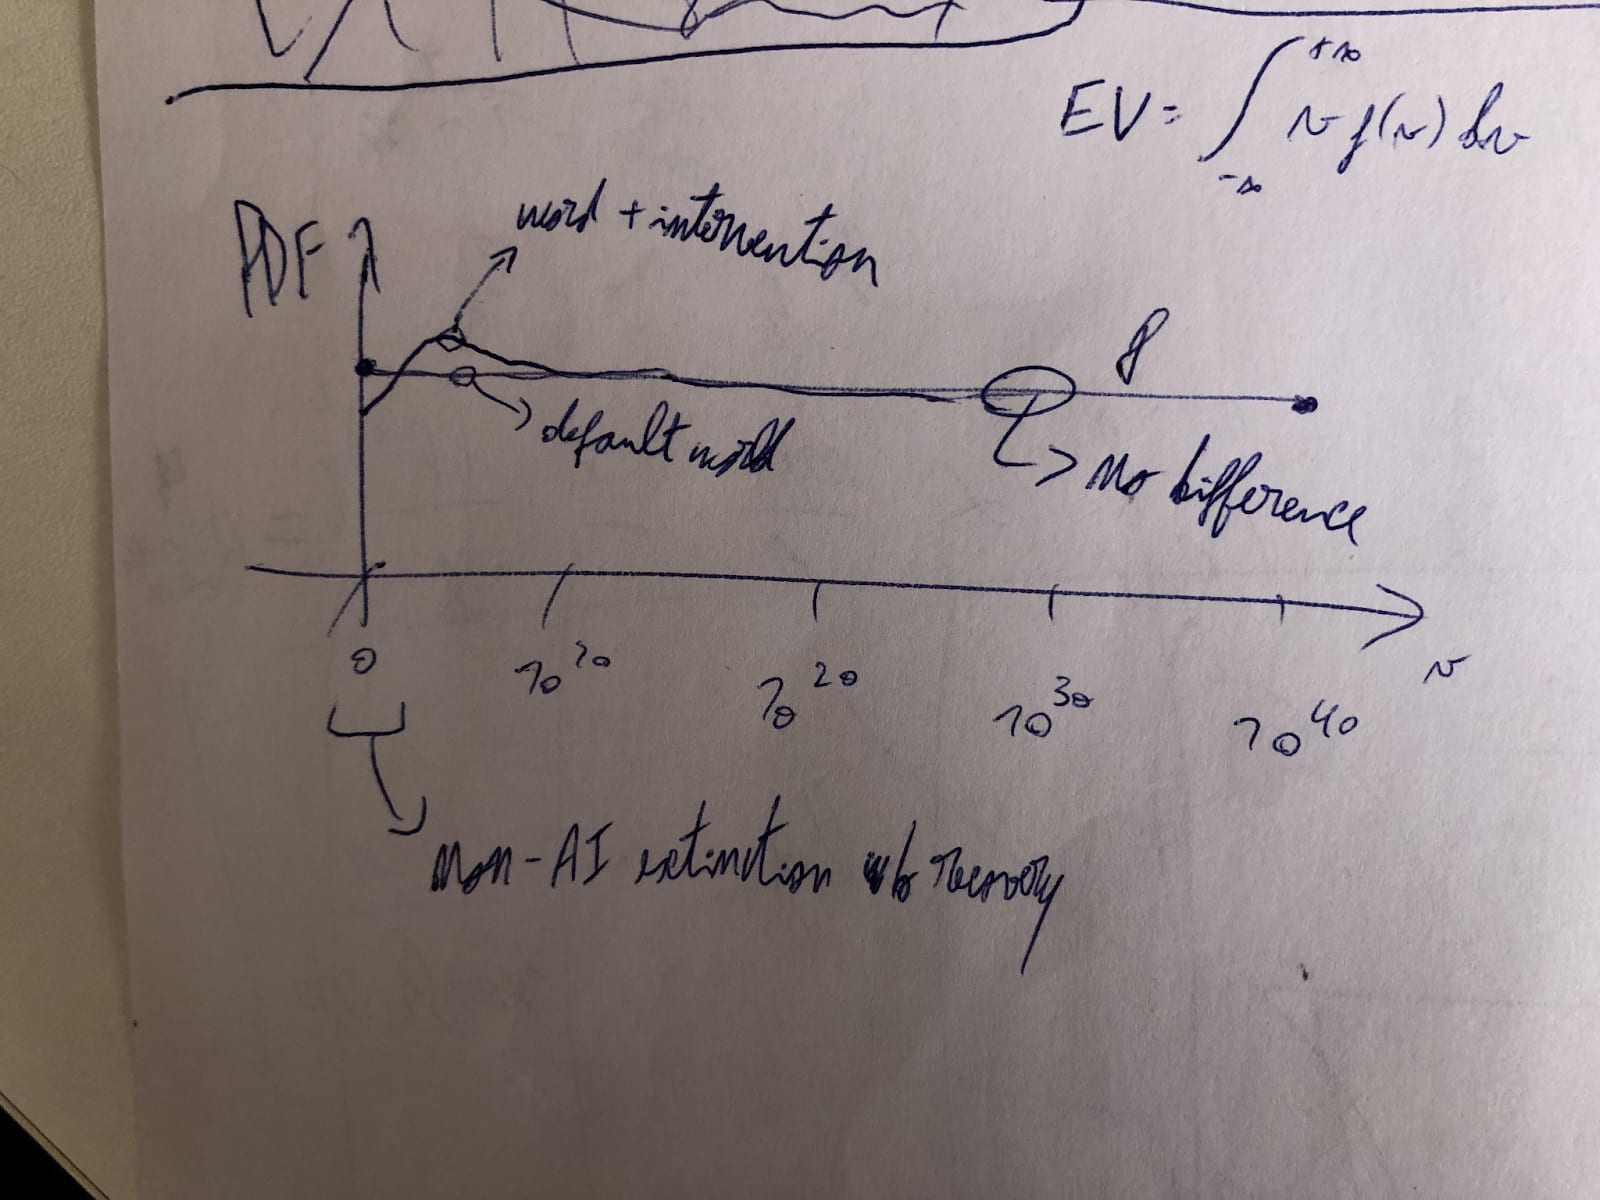 EV = ∫ v f(v) dv
+∞
-∞
PDF
word + intervention
default world
f
No difference
0
10^10
10^20
10^30
10^40
v
Non-AI extinction w/o recovery